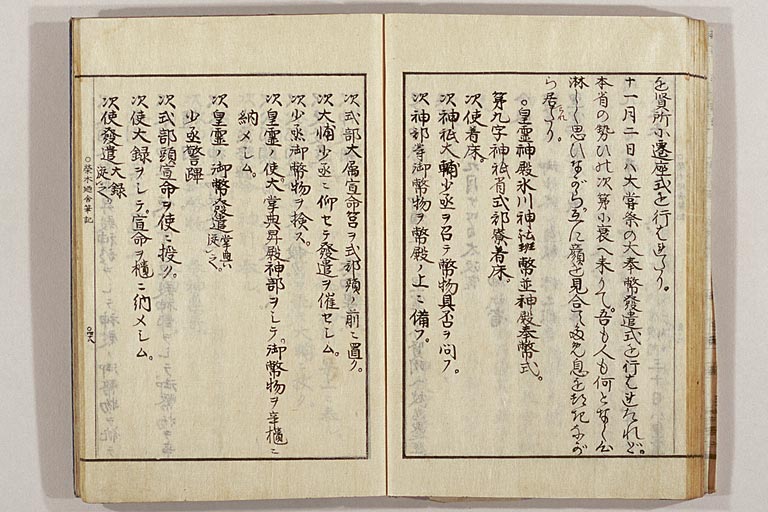 を賢所に遷座式を行はせらる。
十一月二日ハ大嘗祭の大奉幣發遣式を行はせたれど。
本省の勢ひ此次第に衰へ来りて。吾も人も何となく公
淋しく思ひながら。互に顔を見合て
ら居たり。
○皇靈神殿氷川神社班幣並神殿奉幣式。
第九字神祇省式部寮着床。
次使着床。
次神祇大輔少丞ヲ召テ幣物具否ヲ問フ。
次神部等御幣物ヲ幣殿ノ上ニ備フ。
次式部大属宣命筥ヲ式部頭ノ前ニ置ク。
次大輔少丞ニ仰セテ發遣ヲ催セシム。
次少丞御幣物ヲ検ス。
次皇靈ノ使大掌典昇殿神部ヲシテ。御幣物ヲ辛櫃ニ
納メシム。
次皇靈ノ御幣發遣掌典从之。
少丞警蹕
次式部頭宣命ヲ使ニ授ク。
次使大録ヲシテ。宣命ヲ櫃ニ納メシム。
次使發遣大録从之。